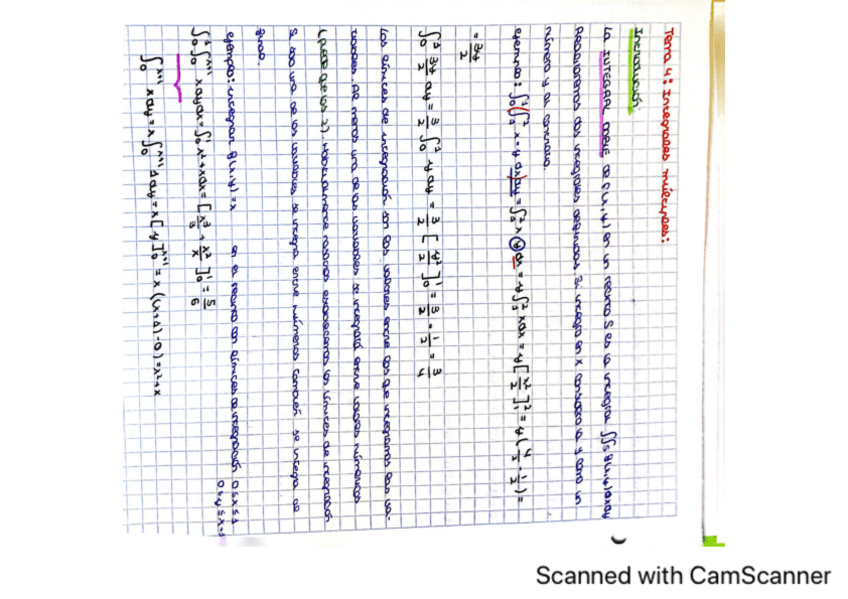 Tema 4: Integrales múltiples:
Introducción
La INTEGRAL DOBLE de f(x,y) en un recinto S es la integral ∫∫s f(x,y)dxdy
Resolveremos dos integrales definidas. Si integro en x considero la y como un
número y al contrario.
ejemplo: ∫₀¹(∫₁² x·y dx)dy = ∫₁² x y dx = y∫₁² x dx = y[x²/2]₁² = y(4/2 - 1/2) =
= 3y/2
∫₀¹ 3y/2 dy = 3/2 ∫₀¹ y dy = 3/2 [y²/2]₀¹ = 3/2 · 1/2 = 3/4
Los límites de integración son los valores entre los que integramos las va-
riables. Al menos una de las variables se integrará entre valores numéricos
(puede que las 2). Habitualmente estableciendo los límites de integración
si una de las variables se integra entre números también se integra la
ejemplo: integrar f(x,y)=x en el recinto con límites de integración 0≤x≤1
0≤y≤x+1
∫₀¹∫₀ˣ⁺¹ x dy dx = ∫₀¹ x²+x dx = [x³/3 + x²/2]₀¹ = 5/6
∫₀ˣ⁺¹ x dy = x∫₀ˣ⁺¹ 1 dy = x[y]₀ˣ⁺¹ = x((x+1)-0) = x²+x
Scanned with CamScanner